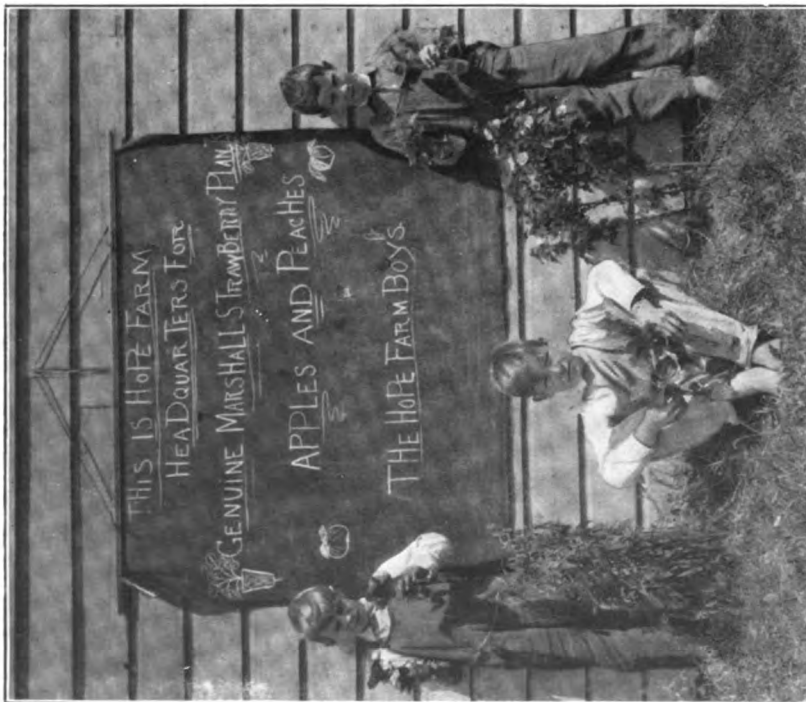 THIS IS HOPE FARM
HEADQUARTERS FOR
GENUINE MARSHALL STRAWBERRY PLAN
APPLES AND PEACHES
THE HOPE FARM BOYS.